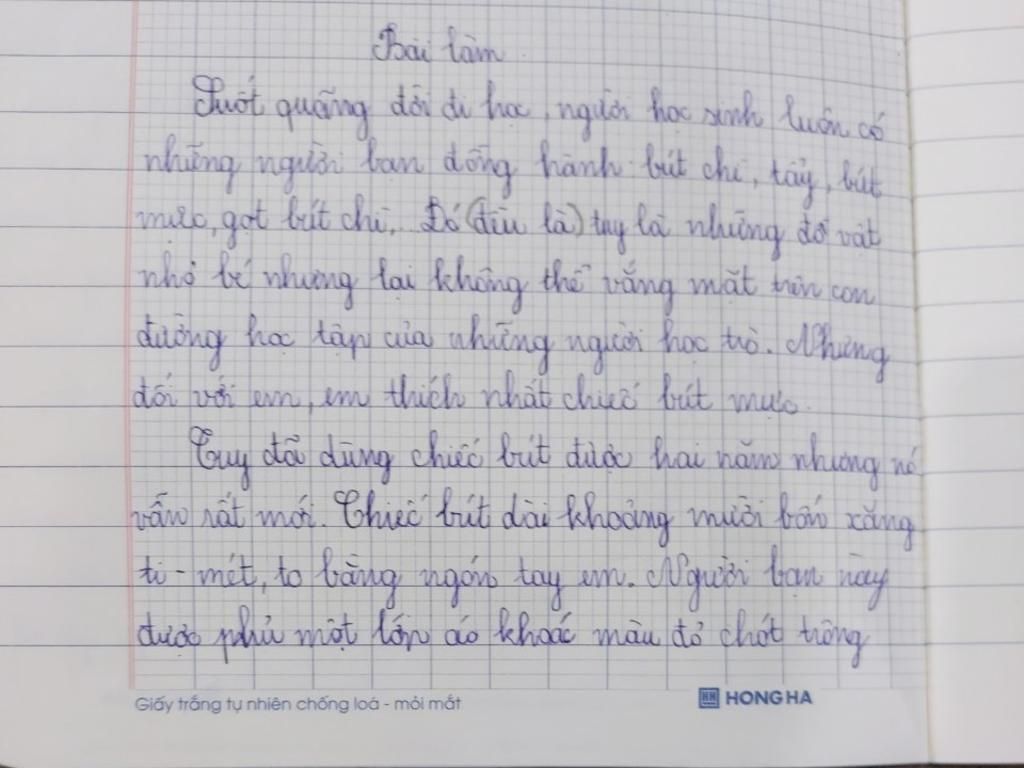 Bài làm
Suốt quãng đời đi học, người học sinh luôn có
những người bạn đồng hành bút chì, tẩy, bút
mực, gọt bút chì. Đó (đều là) tuy là những đồ vật
nhỏ bé nhưng lại không thể vắng mặt trên con
đường học tập của những người học trò. Nhưng
đối với em, em thích nhất chiếc bút mực.
Tuy đã dùng chiếc bút được hai năm nhưng nó
vẫn rất mới. Chiếc bút dài khoảng mười bốn xăng
ti-mét, to bằng ngón tay em. Người bạn này
được phủ một lớp áo khoác màu đỏ chót trông
Giấy trắng tự nhiên chống loá - mỏi mắt
HH HONG HA